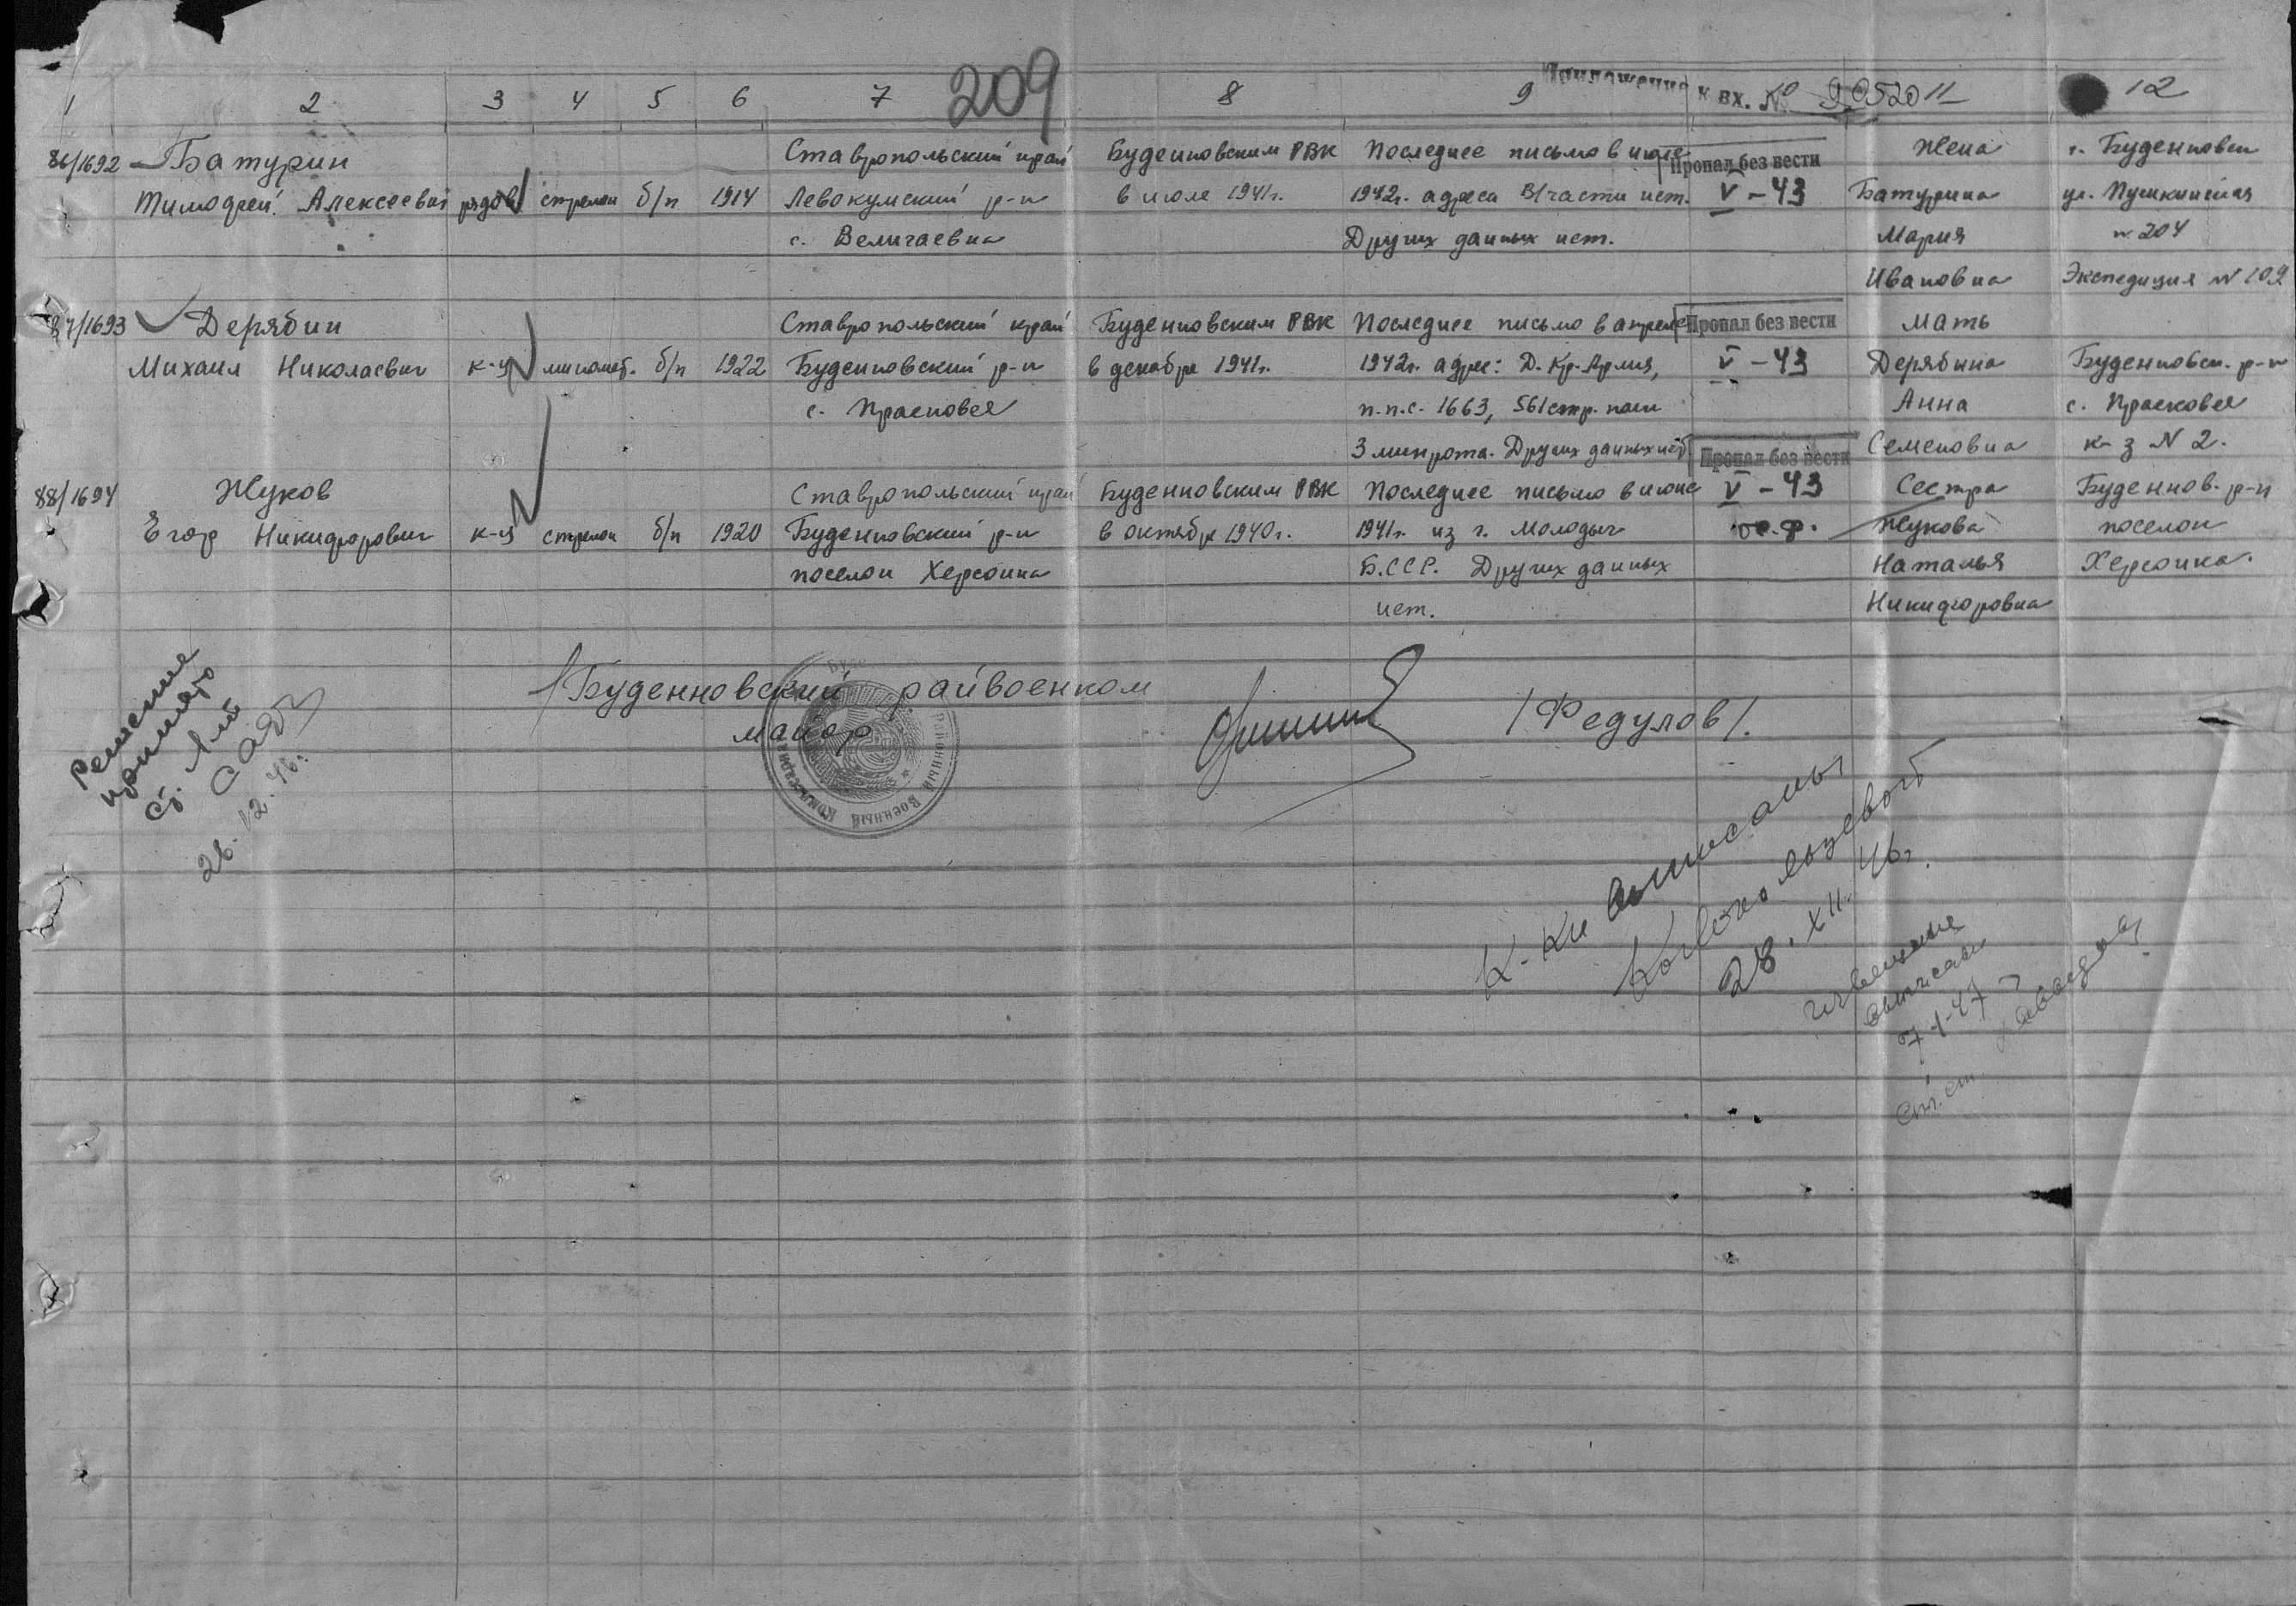 209
Приложение к вх. № 90520
1 2 3 4 5 6 7 8 9 11 12
86/1692 Батурин Ставропольский край Буденновским РВК Последнее письмо в июле Пропал без вести Жена г. Буденновск
Тимофей Алексеевич рядов стрелок б/п 1914 Левокумский р-н в июле 1941г. 1942г. адреса в/части нет. V-43 Батурина ул. Пушкинская
с. Величаевка Других данных нет. Мария № 204
Ивановна Экспедиция № 109
87/1693 Дерябин Ставропольский край Буденновским РВК Последнее письмо в апреле Пропал без вести Мать
Михаил Николаевич к-ц миномет. б/п 1922 Буденновский р-н в декабре 1941г. 1942г. адрес: Д. Кр. Армия, V-43 Дерябина Буденновск. р-н
с. Прасковея п.п.с. 1663, 561 стр. полк Анна с. Прасковея
3 минрота. Других данных нет Пропал без вести Семеновна к-з N 2.
88/1694 Жуков Ставропольский край Буденновским РВК Последнее письмо в июне V-43 Сестра Буденнов. р-н
Егор Никифорович к-ц стрелок б/п 1920 Буденновский р-н в октябре 1940г. 1941г. из г. Молодыч Жукова поселок
поселок Херсонка Б.ССР. Других данных Наталья Херсонка.
нет. Никифоровна
Буденновский райвоенком
майор /Федулов/.
Районный Военный Комиссариат
Решение
принято
ст. л-т
28.12.46.
К-ки выписаны
28.XII.46г.
извещение
выписал
7-1-47